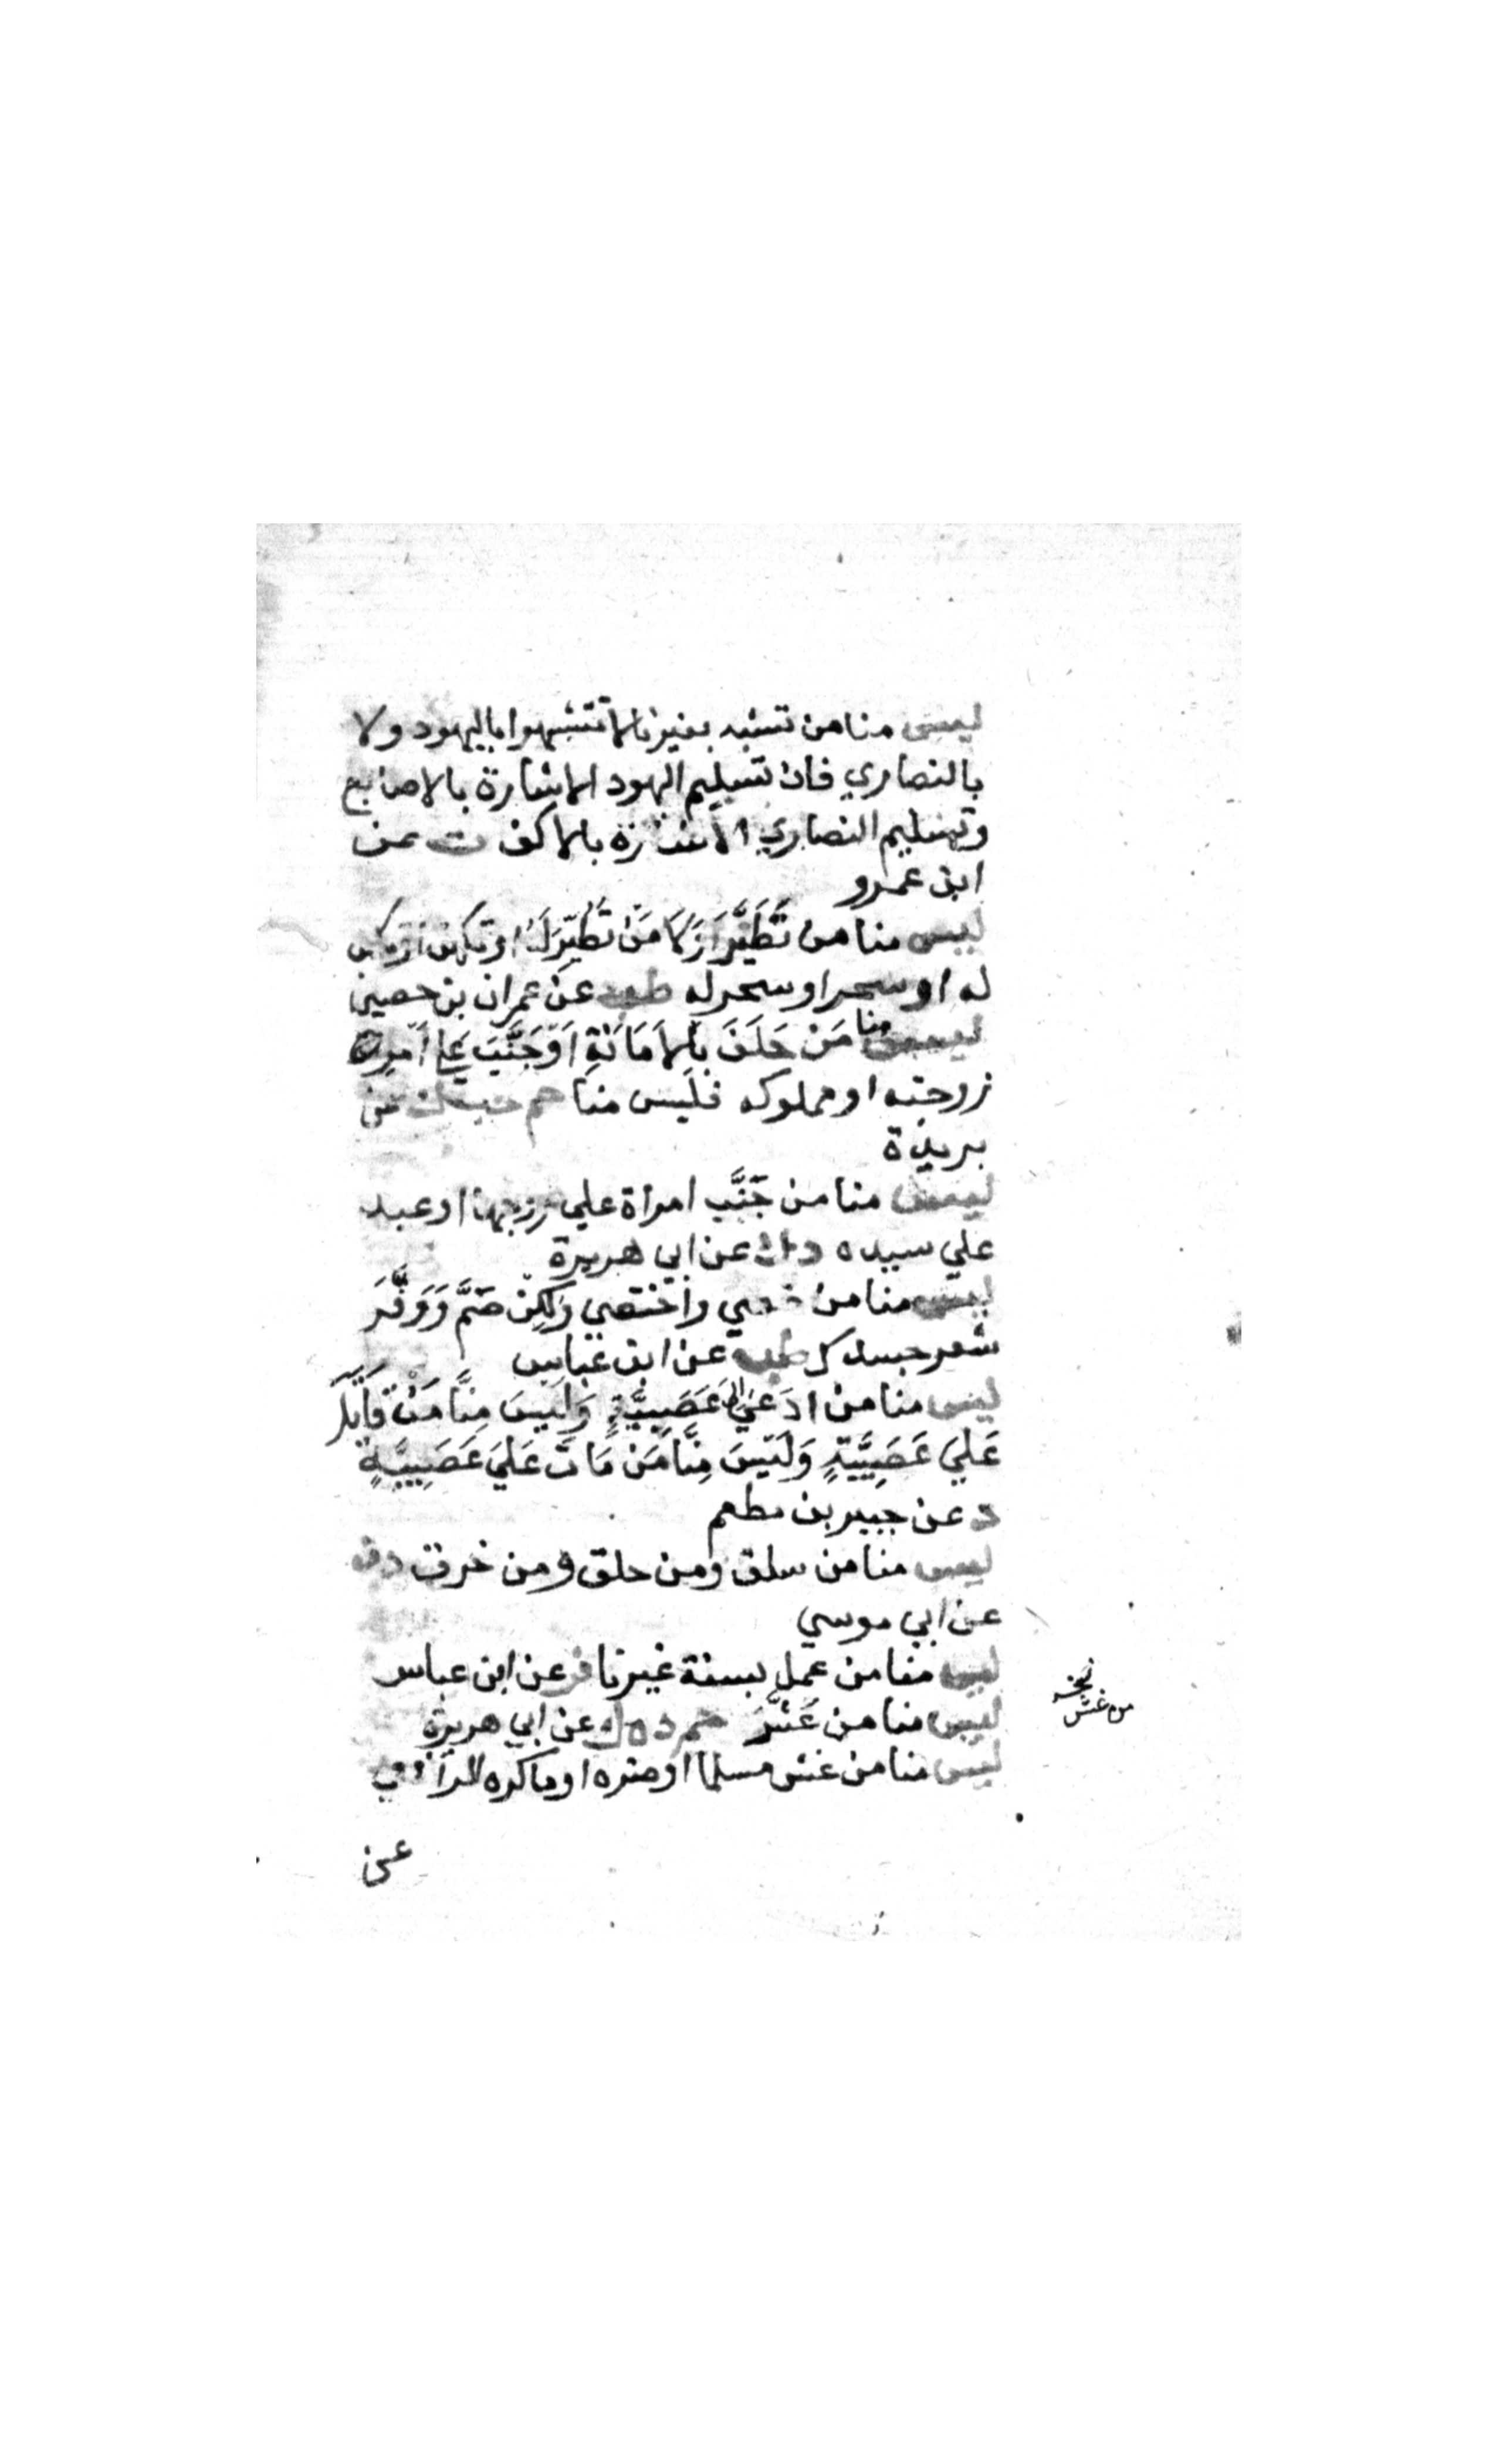 ليس منا من تشبه بغيرنا لا تتشبهوا باليهود ولا
بالنصاري فان تسليم اليهود الاشارة بالاصابع
وتسليم النصاري الاشارة بالاكف ت عن
ابن عمرو
ليس منا من تَطَيَّرَ وَلَا مَنْ تُطُيِّرَ لَهُ او تكهن او تكهن
له او سحر او سحر له طب عن عمران بن حصين
ليس منا مَنْ حَلَفَ بِالاَمَانَةِ اَوْ جَنَّبَ عَلَى اَمْرِئٍ
زوجته او مملوكه فليس منا حم حب ك عن
بريدة
ليس منا من خَبَّب امراة علي زوجها او عبد
علي سيده د ك عن ابي هريرة
ليس منا من خصي واختصي وَلكِنْ صُمْ وَوَفِّرْ
شعر جسدك طب عن ابن عباس
ليس منا من ادَعَي الى عَصَبِيَّةٍ وَلَيسَ مِنَّا مَنْ قَاتَلَ
عَلَي عَصَبِيَّةٍ وَلَيْسَ مِنَّا مَنْ مَاتَ عَلَي عَصَبِيَّةٍ
د عن جبير بن مطعم
ليس منا من سلق ومن حلق ومن خرق د ن
عن ابي موسي
ليس منا من عمل بسنة غيرنا فر عن ابن عباس
ليس منا من غَشَّ حم د ه ك عن ابي هريرة
ليس منا من غش مسلما او ضره او ماكره الرافعي
عن
نسخه
من غش